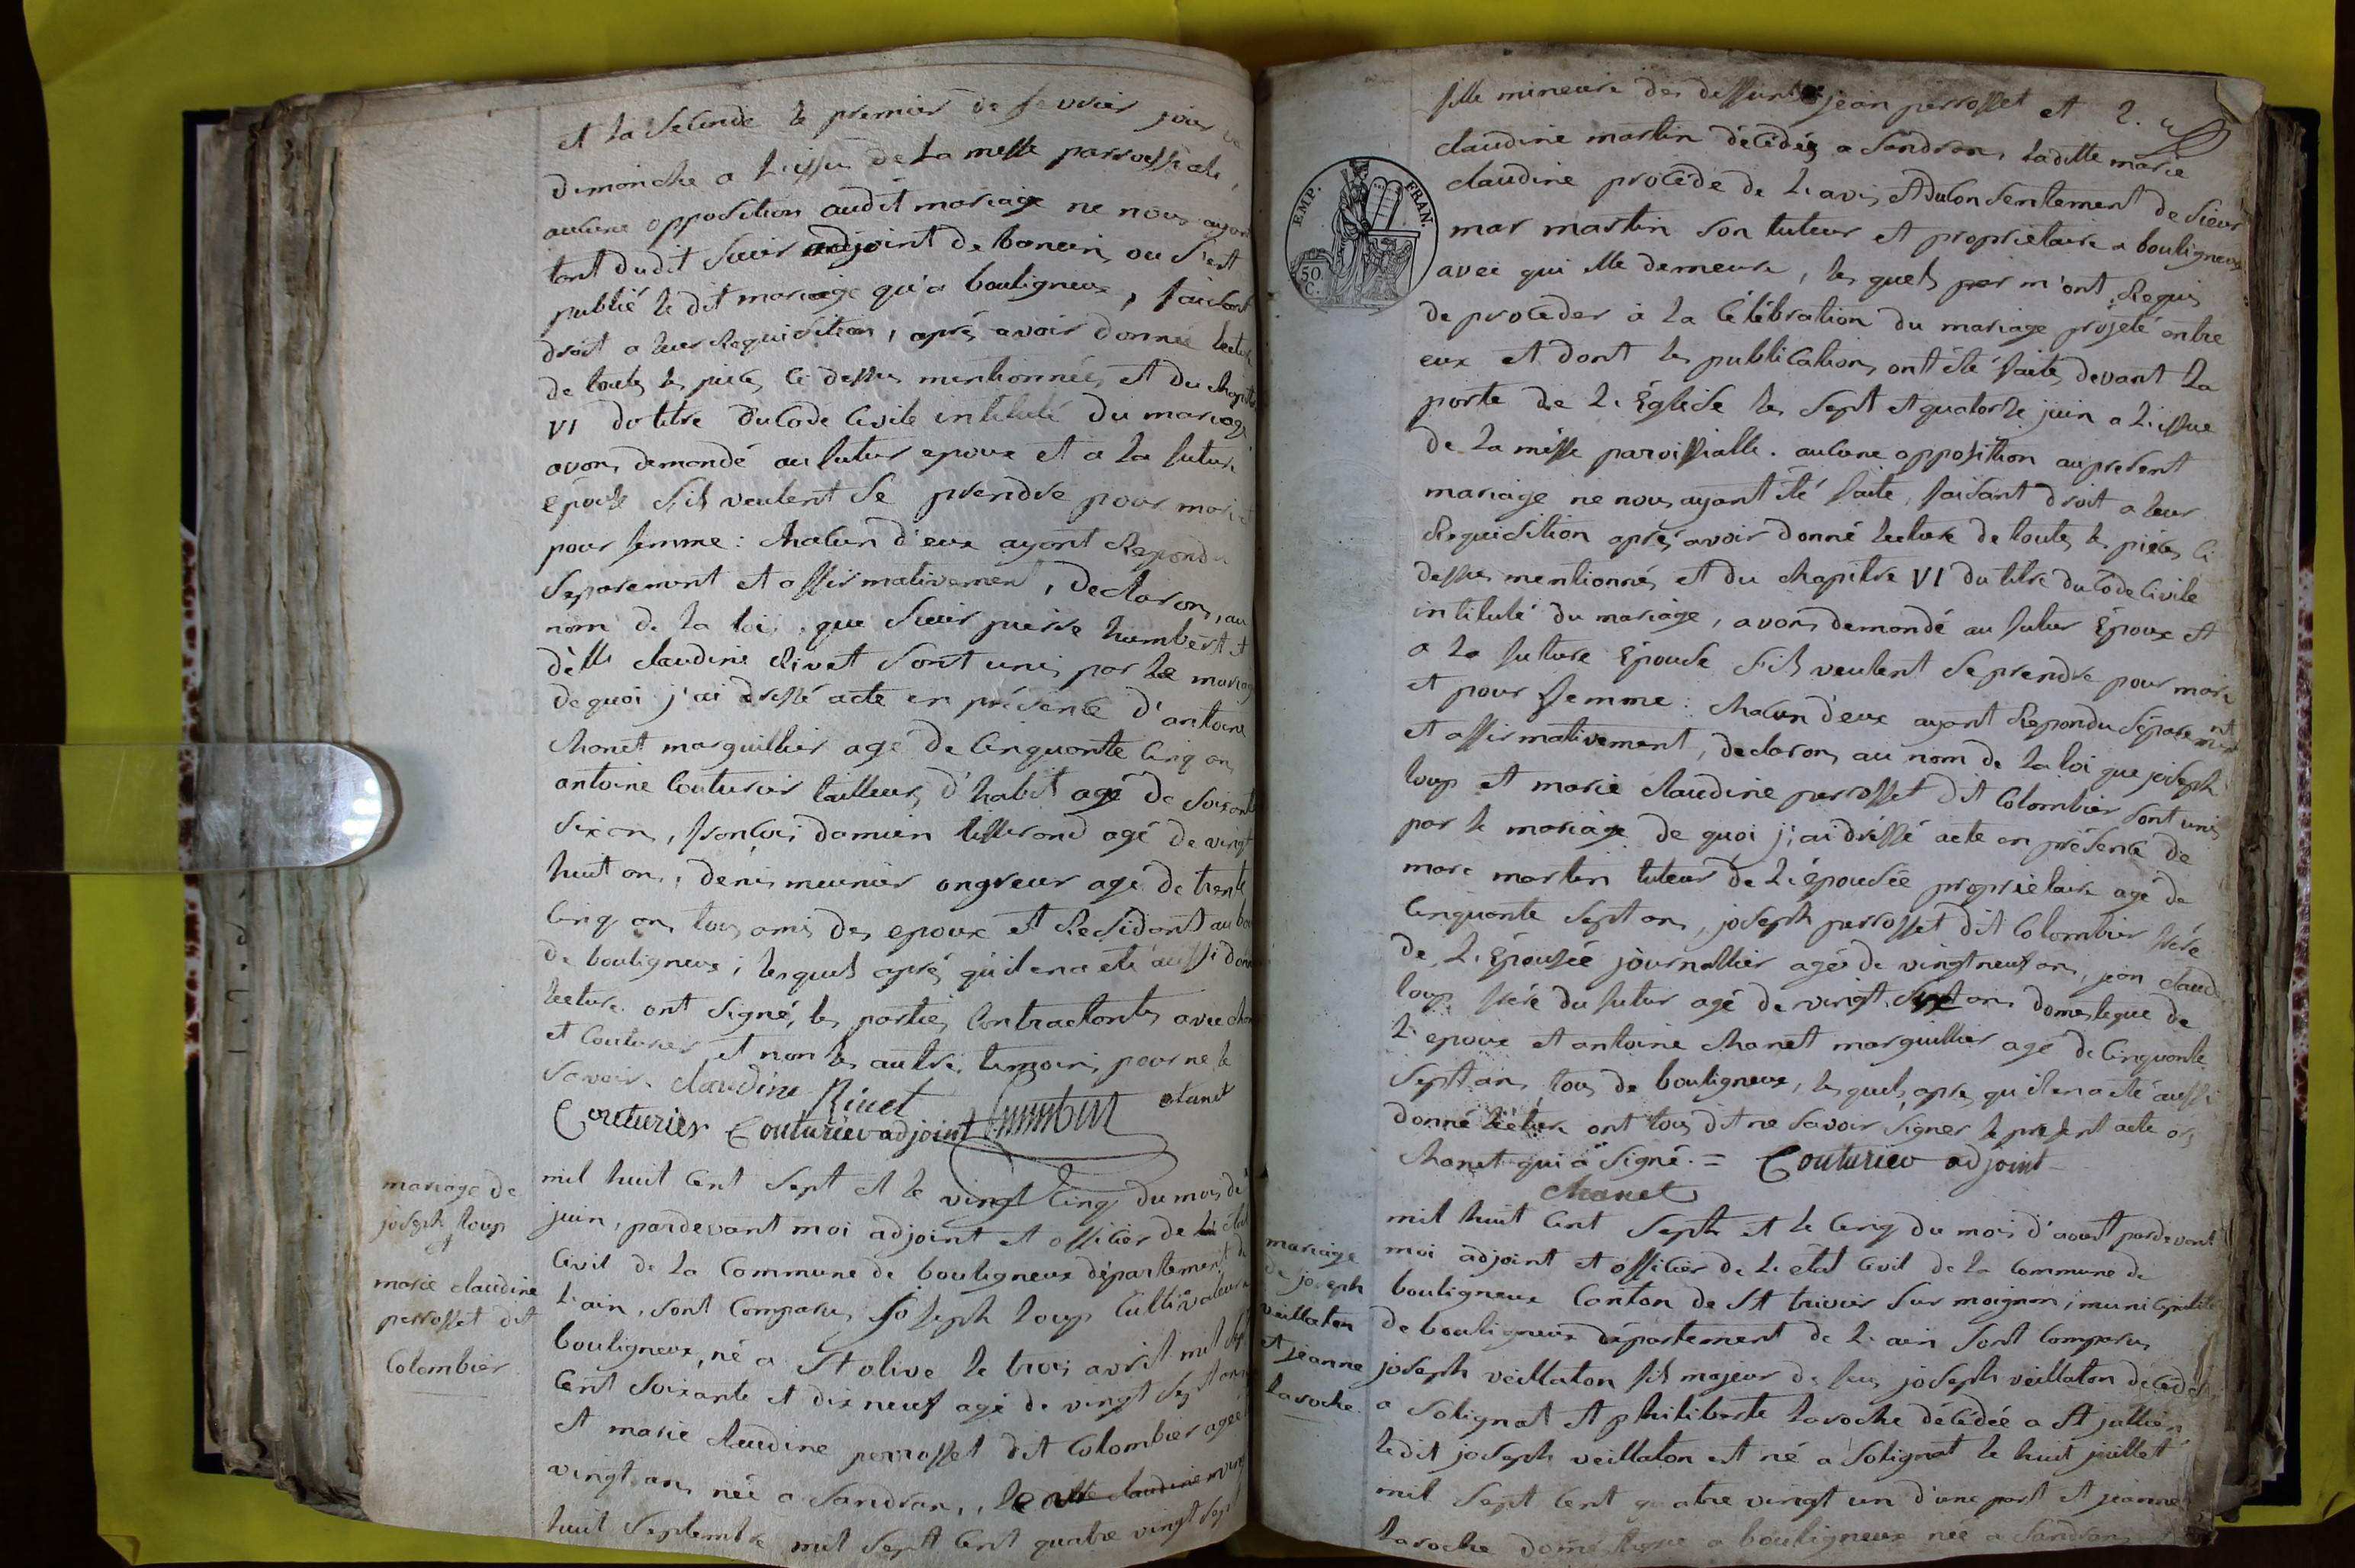 et la seconde le premier de fevrier jour de
dimanche a l'issu de la messe parroissiale,
aucune opposition audit mariage ne nous ayant
tant dudit sieur adjoint de baneins ou s'est
publié le dit mariage qu'a bouligneux, faisant
droit a leur Requisition, après avoir donnée lecture
de toutes les pieces ci dessus mentionnées et du chapitre
VI do titre du Code Civile intitulé du mariage
avons demandé au futur epoux et a la future
épouse s'ils veulent se prendre pour mari et
pour femme : chacun d'eux ayant Repondu
separement et affirmativement, declarons, au
nom de la loi, que sieur pierre humbert et
d'elle claudine Rivet sont unis par le mariage
de quoi j'ai dressé acte en présence d'antoine
Chanet marguillier agé de Cinquante Cinq ans
antoine Couturier tailleur d'habit agé de soixante
six ans, françois damien tisserand agé de vingt
huit ans, denis meunier ongreur agé de trente
Cinq ans tous amis des epoux et Residant au bourg
de bouligneux ; lesquels après qu'il en a eté aussi donné
lecture ont signé, les parties Contractantes avec chanet
et Couturier et non les autres temoins pour ne le
savoir. claudine Rivet
Couturier Couturier adjoint humbert chanet
mariage de
joseph loup
et
marie claudine
perrosset dit
Colombier
mil huit Cent sept et le vingt Cinq du mois de
juin, pardevant moi adjoint et officier de l'état
Civil de la Commune de bouligneux département de
l'ain, sont Comparus joseph loup Cultivateur a
bouligneux, né a St olive le trois avril mil sept
Cent soixante et dix neuf agé de vingt sept ans
et marie claudine perrosset dit Colombier agée
vingt ans née a Sandrans, le
huit Septembre mil sept Cent quatre vingt sept
fille mineure des deffunts jean perrosset et 2.
claudine martin décédés a Sandrans, ladite marie
claudine procède de l'avis et du Consentement de sieur
mar martin son tuteur et proprietaire a bouligneux
avec qui elle demeure, les quels par m'ont Requis
de proceder à la Célébration du mariage projeté entre
eux et dont les publications ont été faites devant la
porte de l'Église les sept et quatorze juin a l'issue
de la messe paroissialle. aucune opposition au present
mariage ne nous ayant été faite, faisant droit a leur
Requisition après avoir donné lecture de toutes les pièces ci
dessus mentionnés et du chapitre VI du titre du Code Civile
intitulé du mariage, avons demandé au futur Époux et
a la future Épouse s'ils veulent se prendre pour mari
et pour femme : chacun d'eux ayant Repondu séparement
et affirmativement, declarons au nom de la loi que joseph
loup et marie claudine perrosset dit Colombier sont unis
par le mariage de quoi j'ai dréssé acte en présence de
marc martin tuteur de l'épousée proprietaire agé de
Cinquante sept ans, joseph perrosset dit Colombier frére
de l'Épousée journallier agé de vingt neuf ans, jean claude
loup frére du futur agé de vingt sept ans domestique de
l'epoux et antoine chanet marguillier agé de Cinquante
sept ans, tous de bouligneux, les quels, apres qu'il en a eté aussi
donné lécture ont tous dit ne savoir signer le present acte
chanet qui a signé. = Couturier adjoint
chanet
EMP. FRAN.
50 C.
mariage
de joseph
veillaton
et jeanne
laroche.
mil huit Cent sept et le Cinq du mois d'aoust pardevant
moi adjoint et officier de l'état Civil de la Commune de
bouligneux Canton de St trivier sur moignan, municipalité
de bouligneux département de l'ain sont Comparus
joseph veillaton fils majeur de feu joseph veillaton decédé
a Solignat et philiberte laroche décédée a St jullien
ledit joseph veillaton est né a Solignat le huit juillet
mil sept Cent quatre vingt un d'une part et jeanne
laroche domestique a bouligneux née a Sandrans